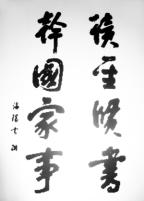 讀聖賢書
幹國家事
海陽